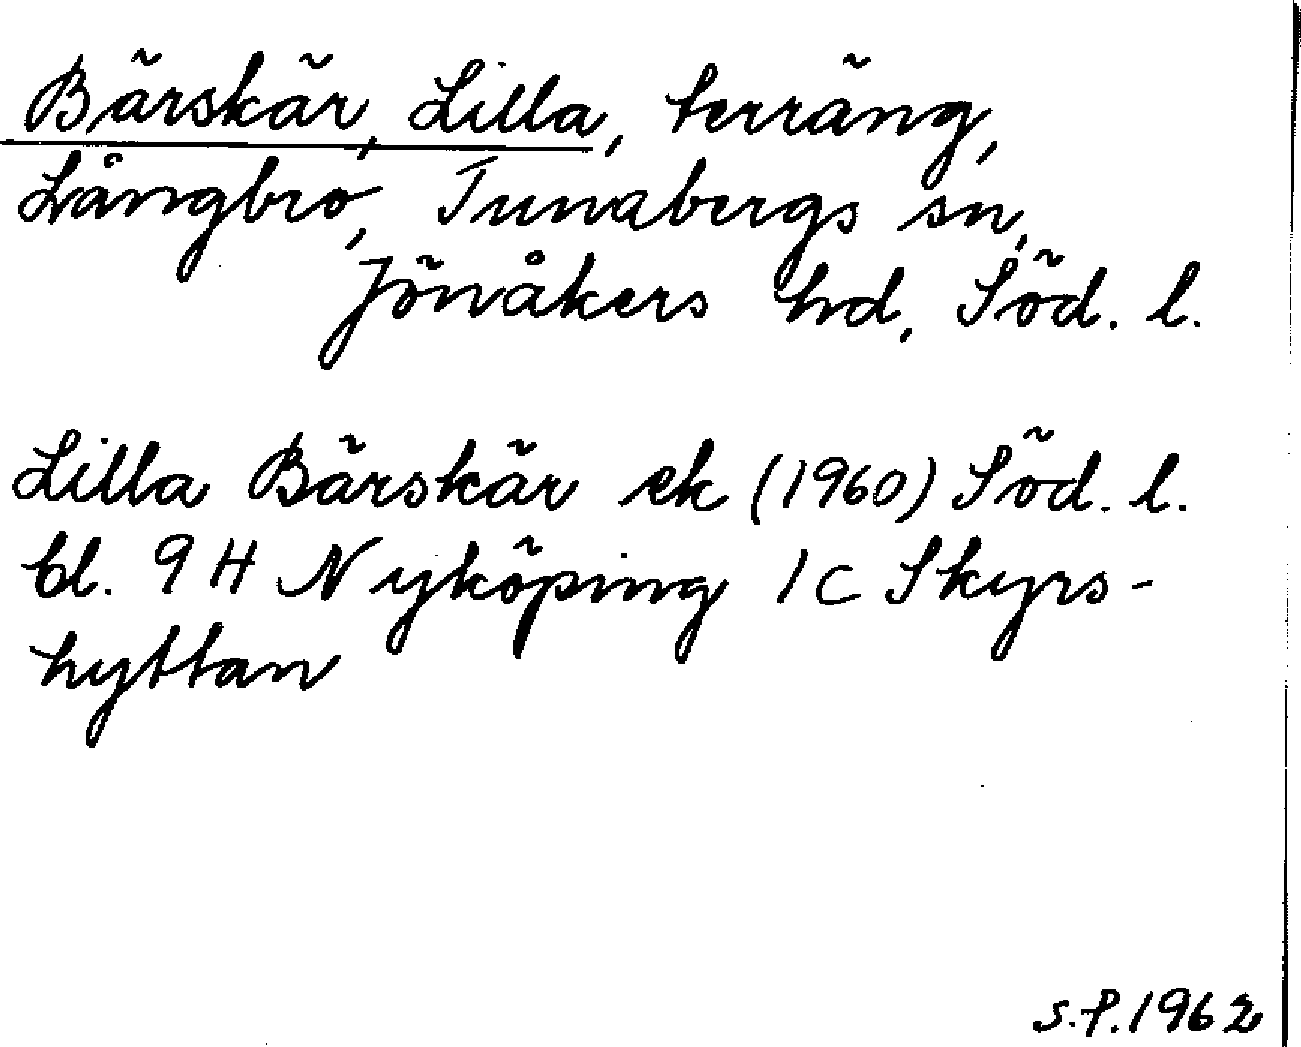 Bärskär, Lilla, terräng,
Långbro, Tunabergs sn,
Jönåkers hd, Söd. l.
Lilla Bärskär ek (1960) Söd. l.
bl. 9 H Nyköping 1 C Skyrs-
hyttan
S.P. 1962